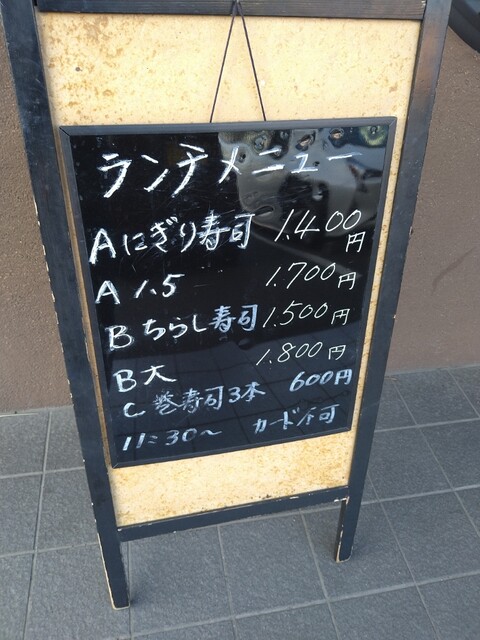 ランチメニュー
Aにぎり寿司 1.400円
A 1.5 1.700円
Bちらし寿司 1.500円
B大 1.800円
C 巻寿司3本 600円
11:30〜 カード不可